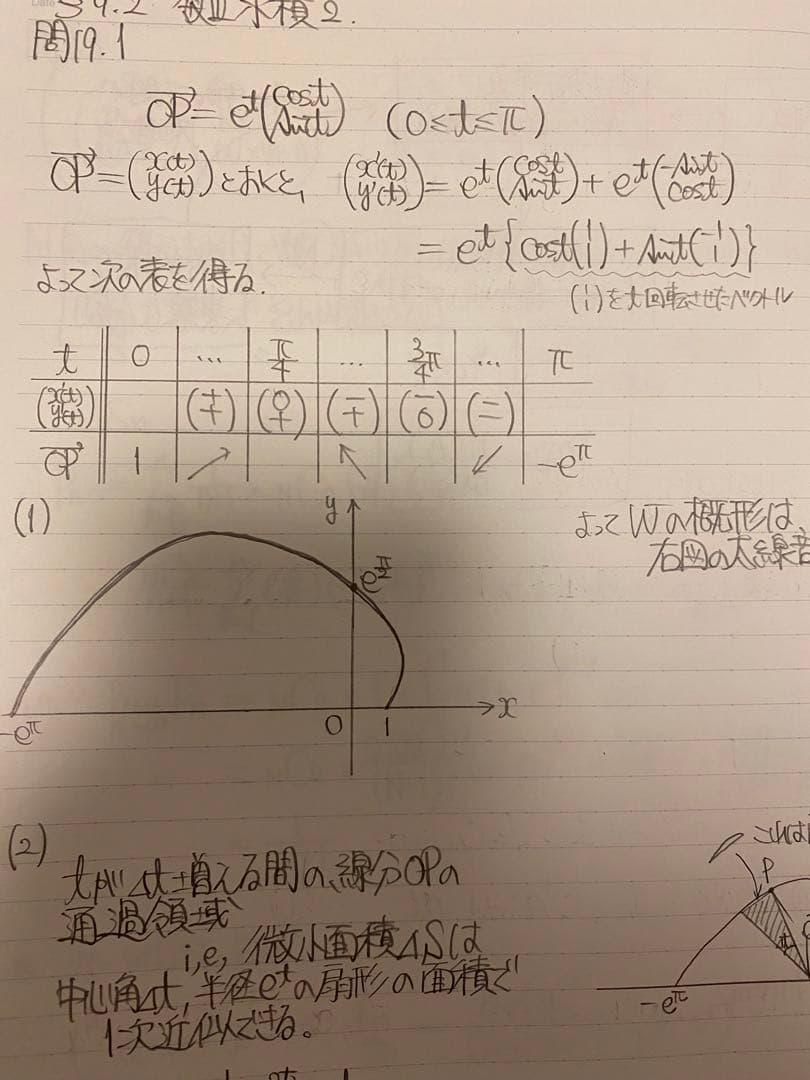 §9.2 微小面積2.
問19.1
OP→ = e^t(cost sint) (0≤t≤π)
OP→ = (x(t) y(t))とおくと, (x'(t) y'(t)) = e^t(cost sint) + e^t(-sint cost)
= e^t{cost(1 1) + sint(-1 1)}
よって次の表を得る. (1 1)をt回転させたベクトル
t 0 … π/4 … 3/4π … π
(x'(t) y'(t)) (+ +) (0 +) (- +) (- 0) (- -)
OP→ 1 ↗ ↖ ↙ -e^π
(1) y よってWの概形は,
右図の太線
e^(π/2)
-e^π 0 1 x
(2) これは
tがΔt増える間の,線分OPの P
通過領域
i,e, 微小面積ΔSは
中心角Δt, 半径e^tの扇形の面積で -e^π
1次近似できる。